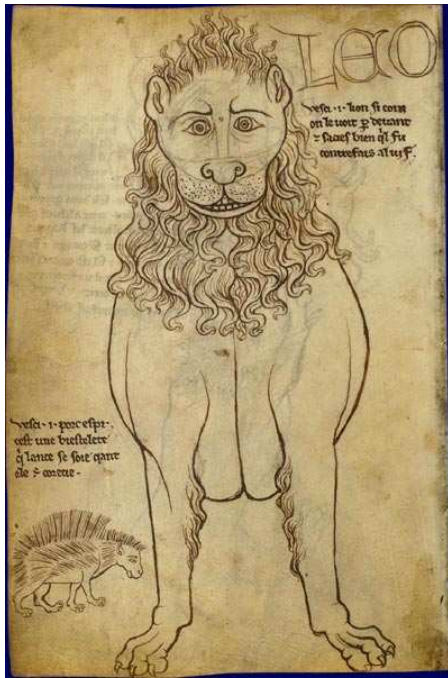 Leo
Vesci · i · lion si com
on le voit p̲ devant
⁊ sacies bien ql̓ fu
contrefais al vif.
Vesci · i · porc espi ·
cest une biestelete
q̓ lance se soie qant
ele ē corecie ·